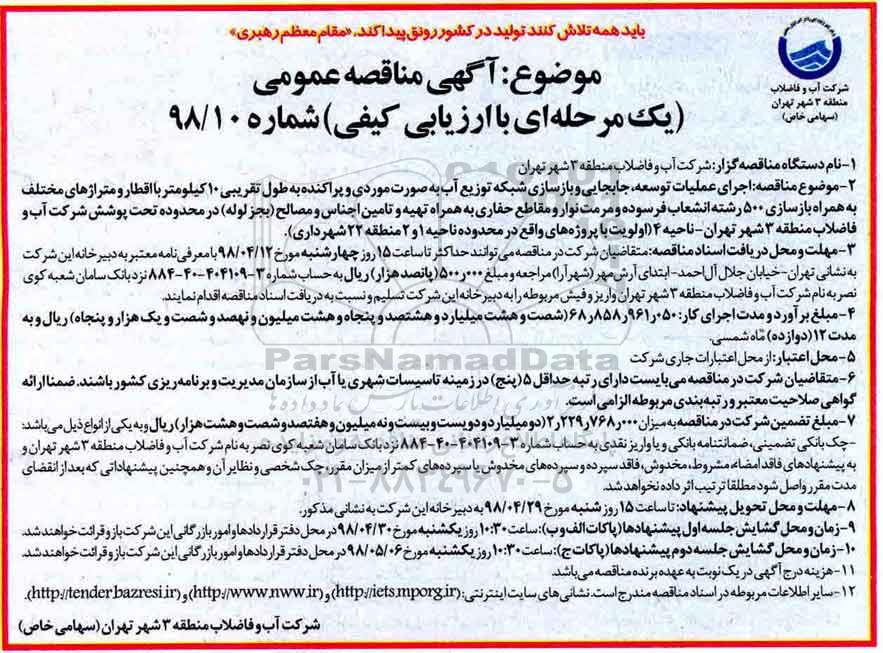 باید همه تلاش کنند تولید در کشور رونق پیدا کند. «مقام معظم رهبری»
شرکت آب و فاضلاب
منطقه ۳ شهر تهران
(سهامی خاص)
موضوع: آگهی مناقصه عمومی
(یک مرحله‌ای با ارزیابی کیفی) شماره ۹۸/۱۰
۱-نام دستگاه مناقصه گزار: شرکت آب و فاضلاب منطقه ۳ شهر تهران
۲-موضوع مناقصه: اجرای عملیات توسعه، جابجایی و بازسازی شبکه توزیع آب به صورت موردی و پراکنده به طول تقریبی ۱۰ کیلومتر با اقطار و متراژهای مختلف
به همراه بازسازی ۵۰۰ رشته انشعاب فرسوده و مرمت نوار و مقاطع حفاری به همراه تهیه و تامین اجناس و مصالح (بجز لوله) در محدوده تحت پوشش شرکت آب و
فاضلاب منطقه ۳ شهر تهران-ناحیه ۴ (اولویت با پروژه‌های واقع در محدوده ناحیه ۱ و ۲ منطقه ۲۲ شهرداری).
۳-مهلت و محل دریافت اسناد مناقصه: متقاضیان شرکت در مناقصه می‌توانند حداکثر تا ساعت ۱۵ روز چهارشنبه مورخ ۹۸/۰۴/۱۲ با معرفی نامه معتبر به دبیرخانه این شرکت
به نشانی تهران-خیابان جلال آل احمد- ابتدای آرش مهر (شهرآرا) مراجعه و مبلغ ۵۰۰٫۰۰۰ (پانصد هزار) ریال به حساب شماره ۳-۴۰۴۱۰۹-۴۰-۸۸۴ نزد بانک سامان شعبه کوی
نصر به نام شرکت آب و فاضلاب منطقه ۳ شهر تهران واریز و فیش مربوطه را به دبیرخانه این شرکت تسلیم و نسبت به دریافت اسناد مناقصه اقدام نمایند.
۴-مبلغ برآورد و مدت اجرای کار: ۶۸٫۸۵۸٫۹۶۱٫۰۵۰ (شصت و هشت میلیارد و هشتصد و پنجاه و هشت میلیون و نهصد و شصت و یک هزار و پنجاه) ریال و به
مدت ۱۲ (دوازده) ماه شمسی.
۵-محل اعتبار: از محل اعتبارات جاری شرکت
۶-متقاضیان شرکت در مناقصه می‌بایست دارای رتبه حداقل ۵ (پنج) در زمینه تاسیسات شهری یا آب از سازمان مدیریت و برنامه‌ریزی کشور باشند. ضمنا ارائه
گواهی صلاحیت معتبر و رتبه‌بندی مربوطه الزامی است.
۷-مبلغ تضمین شرکت در مناقصه به میزان ۲٫۲۲۹٫۷۶۸٫۰۰۰ (دو میلیارد و دویست و بیست و نه میلیون و هفتصد و شصت و هشت هزار) ریال و به یکی از انواع ذیل می‌باشد:
-چک بانکی تضمینی، ضمانتنامه بانکی و یا واریز نقدی به حساب شماره ۳-۴۰۴۱۰۹-۴۰-۸۸۴ نزد بانک سامان شعبه کوی نصر به نام شرکت آب و فاضلاب منطقه ۳ شهر تهران و
به پیشنهادهای فاقد امضاء، مشروط، مخدوش، فاقد سپرده و سپرده‌های مخدوش یا سپرده‌های کمتر از میزان مقرر، چک شخصی و نظایر آن و همچنین پیشنهاداتی که بعد از انقضای
مدت مقرر واصل شود مطلقا ترتیب اثر داده نخواهد شد.
۸-مهلت و محل تحویل پیشنهاد: تا ساعت ۱۵ روز شنبه مورخ ۹۸/۰۴/۲۹ به دبیرخانه این شرکت به نشانی مذکور.
۹-زمان و محل گشایش جلسه اول پیشنهادها (پاکات الف و ب): ساعت ۱۰:۳۰ روز یکشنبه مورخ ۹۸/۰۴/۳۰ در محل دفتر قراردادها و امور بازرگانی این شرکت باز و قرائت خواهند شد.
۱۰-زمان و محل گشایش جلسه دوم پیشنهادها (پاکات ج): ساعت ۱۰:۳۰ روز یکشنبه مورخ ۹۸/۰۵/۰۶ در محل دفتر قراردادها و امور بازرگانی این شرکت باز و قرائت خواهند شد.
۱۱-هزینه درج آگهی در یک نوبت به عهده برنده مناقصه می‌باشد.
۱۲-سایر اطلاعات مربوطه در اسناد مناقصه مندرج است. نشانی‌های سایت اینترنتی: (http://iets.mporg.ir) و (http://www.nww.ir) و (http://tender.bazresi.ir).
شرکت آب و فاضلاب منطقه ۳ شهر تهران (سهامی خاص)
ParsNamadData
۰۲۱-۸۸۳۴۹۶۷۰-۵